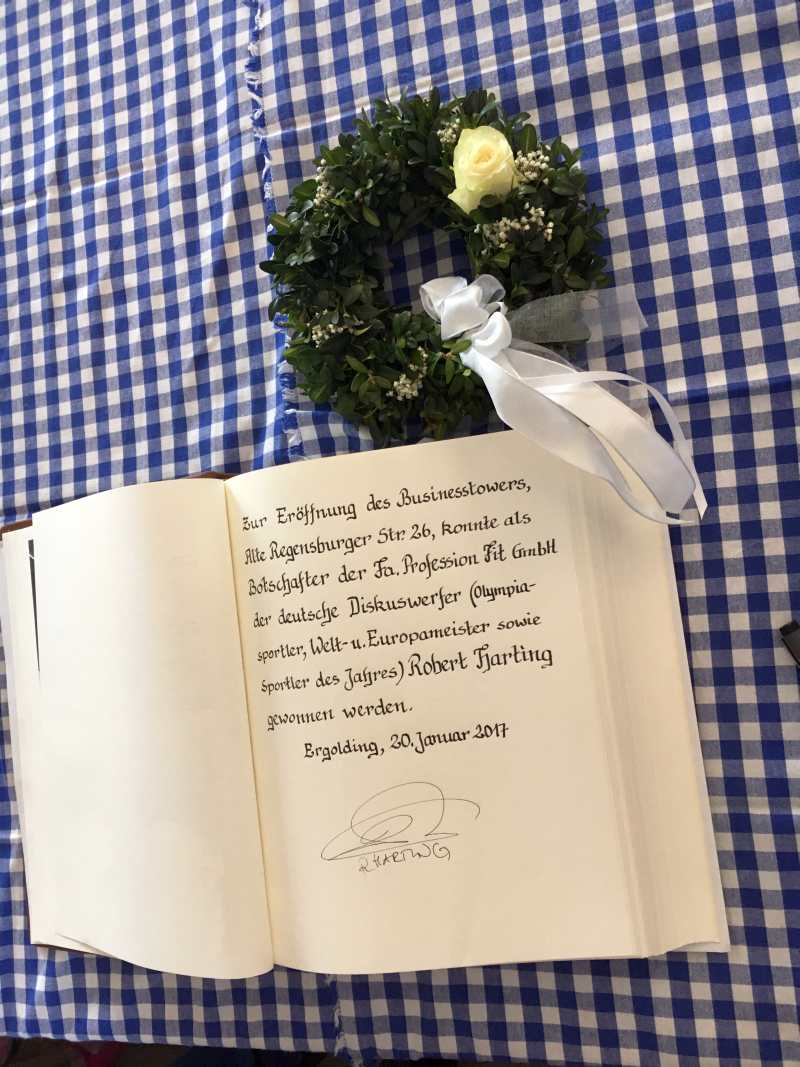 Zur Eröffnung des Businesstowers,
Alte Regensburger Str. 26, konnte als
Botschafter der Fa. Profession Fit GmbH
der deutsche Diskuswerfer (Olympia-
sportler, Welt- u. Europameister sowie
Sportler des Jahres) Robert Harting
gewonnen werden.
Ergolding, 20. Januar 2017
R HARTING